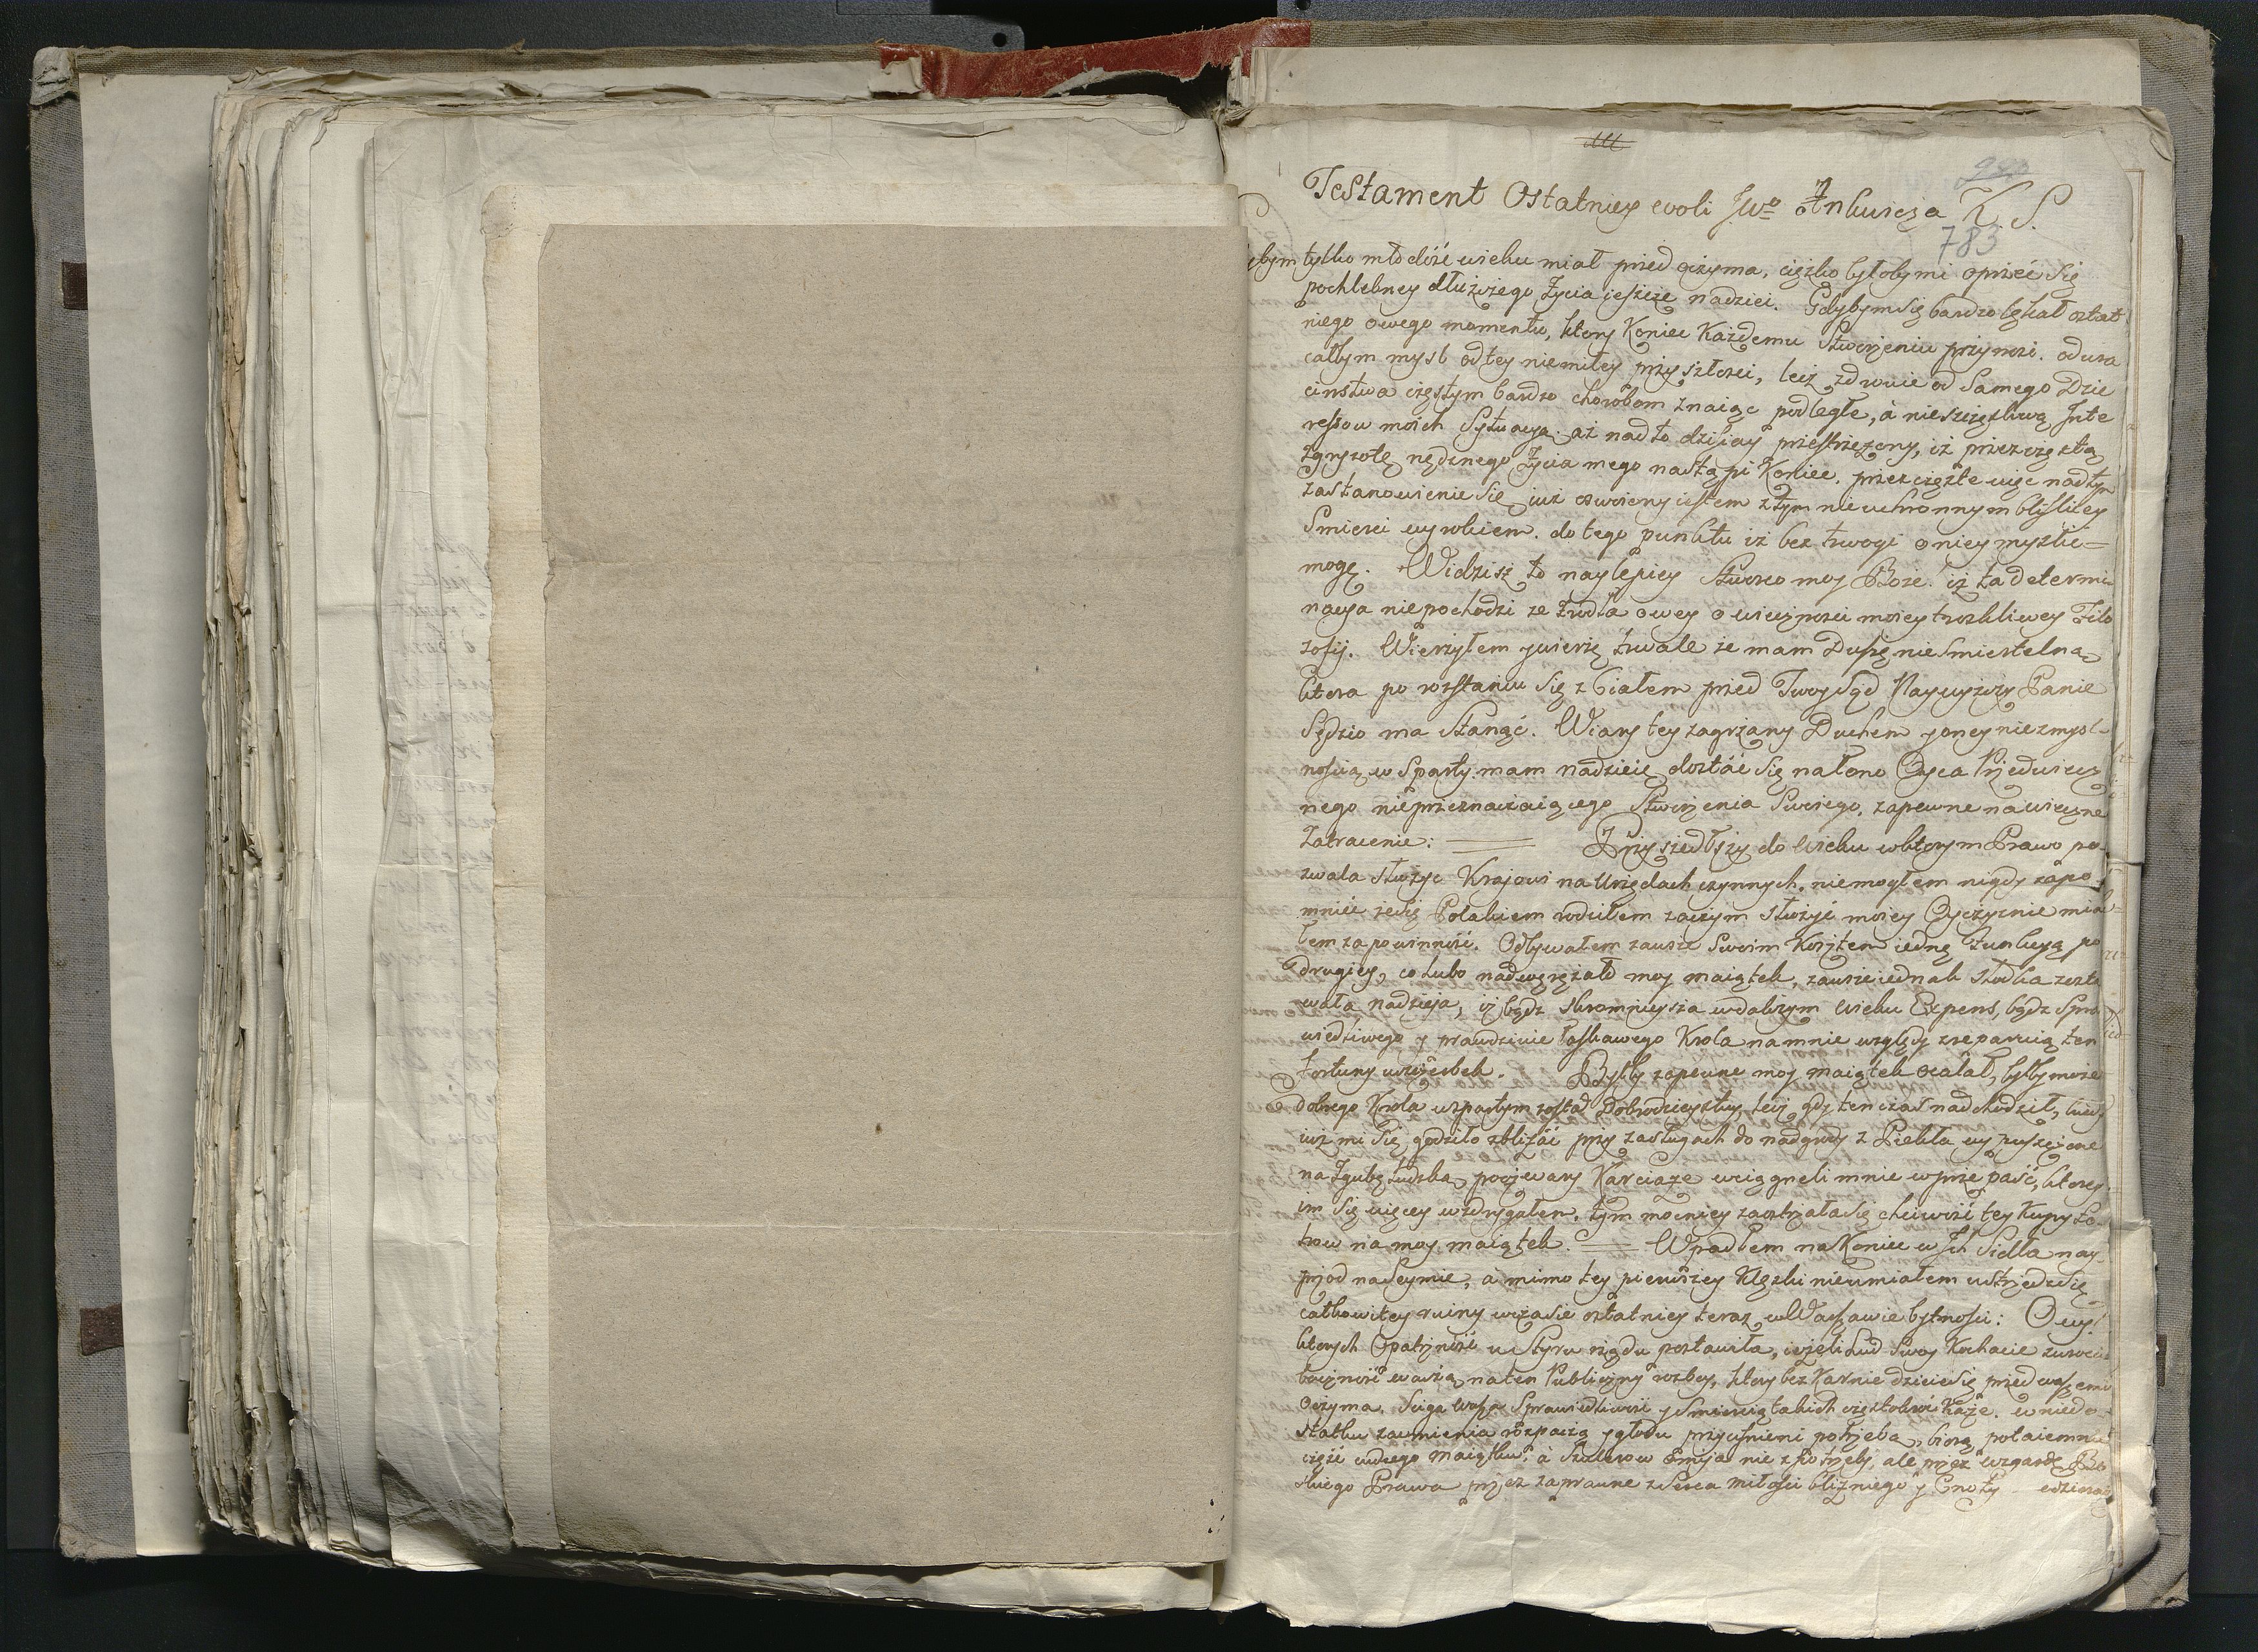 Testament Ostatniey woli JWo Ankwicza K. S.
783
bym tylko młodość wieku miał przed oczyma, ciężko byłoby mi oprzeć się
pochlebney dłuższego życia jeszcze nadziei. Gdybym się bardzo lękał ostat
niego owego momentu, ktory Koniec Każdemu Stworzeniu przynosi. odwra
całbym mysl od tey niemiłey przyszłosci, lecz zdrowie od Samego Dzie
cinstwa częstym bardzo chorobom znaiąc podległe, à nieszczęśliwą Inte
ressow moich Sytuacyą aż nadto dzisiay przestrzeżony, iż przez częstą
zgryzotę nędznego życia mego nastąpi Koniec. przez częste więc nad tym
zastanowienie się już oswoiony iestem z tym nieuchronnym bliskiey
Smierci wyrokiem. do tego punktu iż bez trwogi o niey myslić
mogę. Widzisz to naylepiey Stworco moy Boże! iż ta determi
nacya niepochodzi ze źrodła owey o wieczności moiey troskliwey Filo
zofij. Wierzyłem y wierzę trwale że mam Duszę nieśmiertelną
ktora po rozstaniu się z Ciałem przed Twoy Sąd Naywyższy Panie
Sędzio ma Stanąć. Wiary tey zagrzany Duchem y oney niezmysl-
nością wsparty mam nadzieię dostać się na łono Oyca Przedwiecz
nego nieprzeznaczaiącego Stworzenia Swoiego, zapewne na wieczne
Zatracenie: Przyszedłszy do wieku w ktorym Prawo po
zwala służyc Krajowi na Urzędach czynnych, niemogłem nigdy zapo
mnieć żesię Polakiem rodziłem zaczym służyć moiey Oyczyznie mia
łem za powinność. Odbywałem zawsze Swoim Kosztem iedną funkcyą po
drugiey, co lubo nadwerężało moy maiątek, zawsze iednak słodka zosta
wała nadzieja, iż bądz skromnieysza w dalszym wieku Expens, bądz Spra
wiedliwego y prawdziwie łaskawego Krola na mnie względy zreparuią ten
fortuny uszczerbek. Byłby zapewne moy maiątek ocalał, byłby może
dobrego Krola wspartym został Dobrodzieystwy, lecz gdy ten czas nadchodził, kiedy
już mi się godziło zbliżać przy zasługach do nadgrody z Piekła wypuszczone
na Zgubę ludzką poczwary Karciarze wciągneli mnie w przepaść, ktorey
im się więcey wzdrygałem, tym mocniey zaostrzała się chciwość tey Kupy Ło
trow na moy maiątek. Wpadłem na Koniec w Jch Sidła nay
przod na Seymie, à mimo tey pierwszey Klęski nieumiałem ustrzedz się
całkowitey ruiny w czasie ostatniey teraz w Warszawie bytności: O wy!
ktorych Opatrzność u Styru rządu postawiła, ieżeli Lud Swoy Kochacie zwroc
baczność waszą na ten Publiczny rozboy, ktory bez Karnie dzieie się przed waszemi
Oczyma. Sciga wasza Sprawiedliwość y Smiercią takich częstokroć Karze. w niedo
statku zaumienia rozpaczą y głodu przycisnieni potrzebą, biorą potaiemnie
część cudzego maiątku, à Szulerow Emija nie z potrzeby, ale przez wzgardę Bo
skiego Prawa przez zaprawne z Serca miłości bliźniego y Cnoty